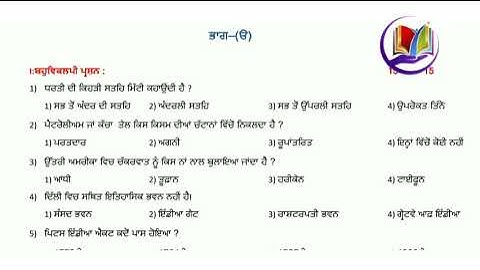 ਭਾਗ–(ੳ)
I:ਬਹੁਵਿਕਲਪੀ ਪ੍ਰਸ਼ਨ : 15 15
1) ਧਰਤੀ ਦੀ ਕਿਹੜੀ ਸਤਹਿ ਮਿੱਟੀ ਕਹਾਉਂਦੀ ਹੈ ?
1) ਸਭ ਤੋਂ ਅੰਦਰ ਦੀ ਸਤਹਿ 2) ਅੰਦਰਲੀ ਸਤਹਿ 3) ਸਭ ਤੋਂ ਉੱਪਰਲੀ ਸਤਹਿ 4) ਉਪਰੋਕਤ ਤਿੰਨੋ
2) ਪੈਟਰੋਲੀਅਮ ਜਾਂ ਕੱਚਾ ਤੇਲ ਕਿਸ ਕਿਸਮ ਦੀਆਂ ਚੱਟਾਨਾਂ ਵਿੱਚੋਂ ਨਿਕਲਦਾ ਹੈ ?
1) ਪਰਤਦਾਰ 2) ਅਗਨੀ 3) ਰੂਪਾਂਤਰਿਤ 4) ਇਨ੍ਹਾਂ ਵਿੱਚੋਂ ਕੋਈ ਨਹੀਂ
3) ਉੱਤਰੀ ਅਮਰੀਕਾ ਵਿਚ ਚੱਕਰਵਾਤ ਨੂੰ ਕਿਸ ਨਾਂ ਨਾਲ ਬੁਲਾਇਆ ਜਾਂਦਾ ਹੈ ?
1) ਆਂਧੀ 2) ਤੂਫ਼ਾਨ 3) ਹਰੀਕੇਨ 4) ਟਾਈਫੂਨ
4) ਦਿੱਲੀ ਵਿਚ ਸਥਿਤ ਇਤਿਹਾਸਿਕ ਭਵਨ ਨਹੀਂ ਹੈ।
1) ਸੰਸਦ ਭਵਨ 2) ਇੰਡੀਆ ਗੇਟ 3) ਰਾਸ਼ਟਰਪਤੀ ਭਵਨ 4) ਗੇਟਵੇ ਆਫ਼ ਇੰਡੀਆ
5) ਪਿਟਸ ਇੰਡੀਆ ਐਕਟ ਕਦੋਂ ਪਾਸ ਹੋਇਆ ?